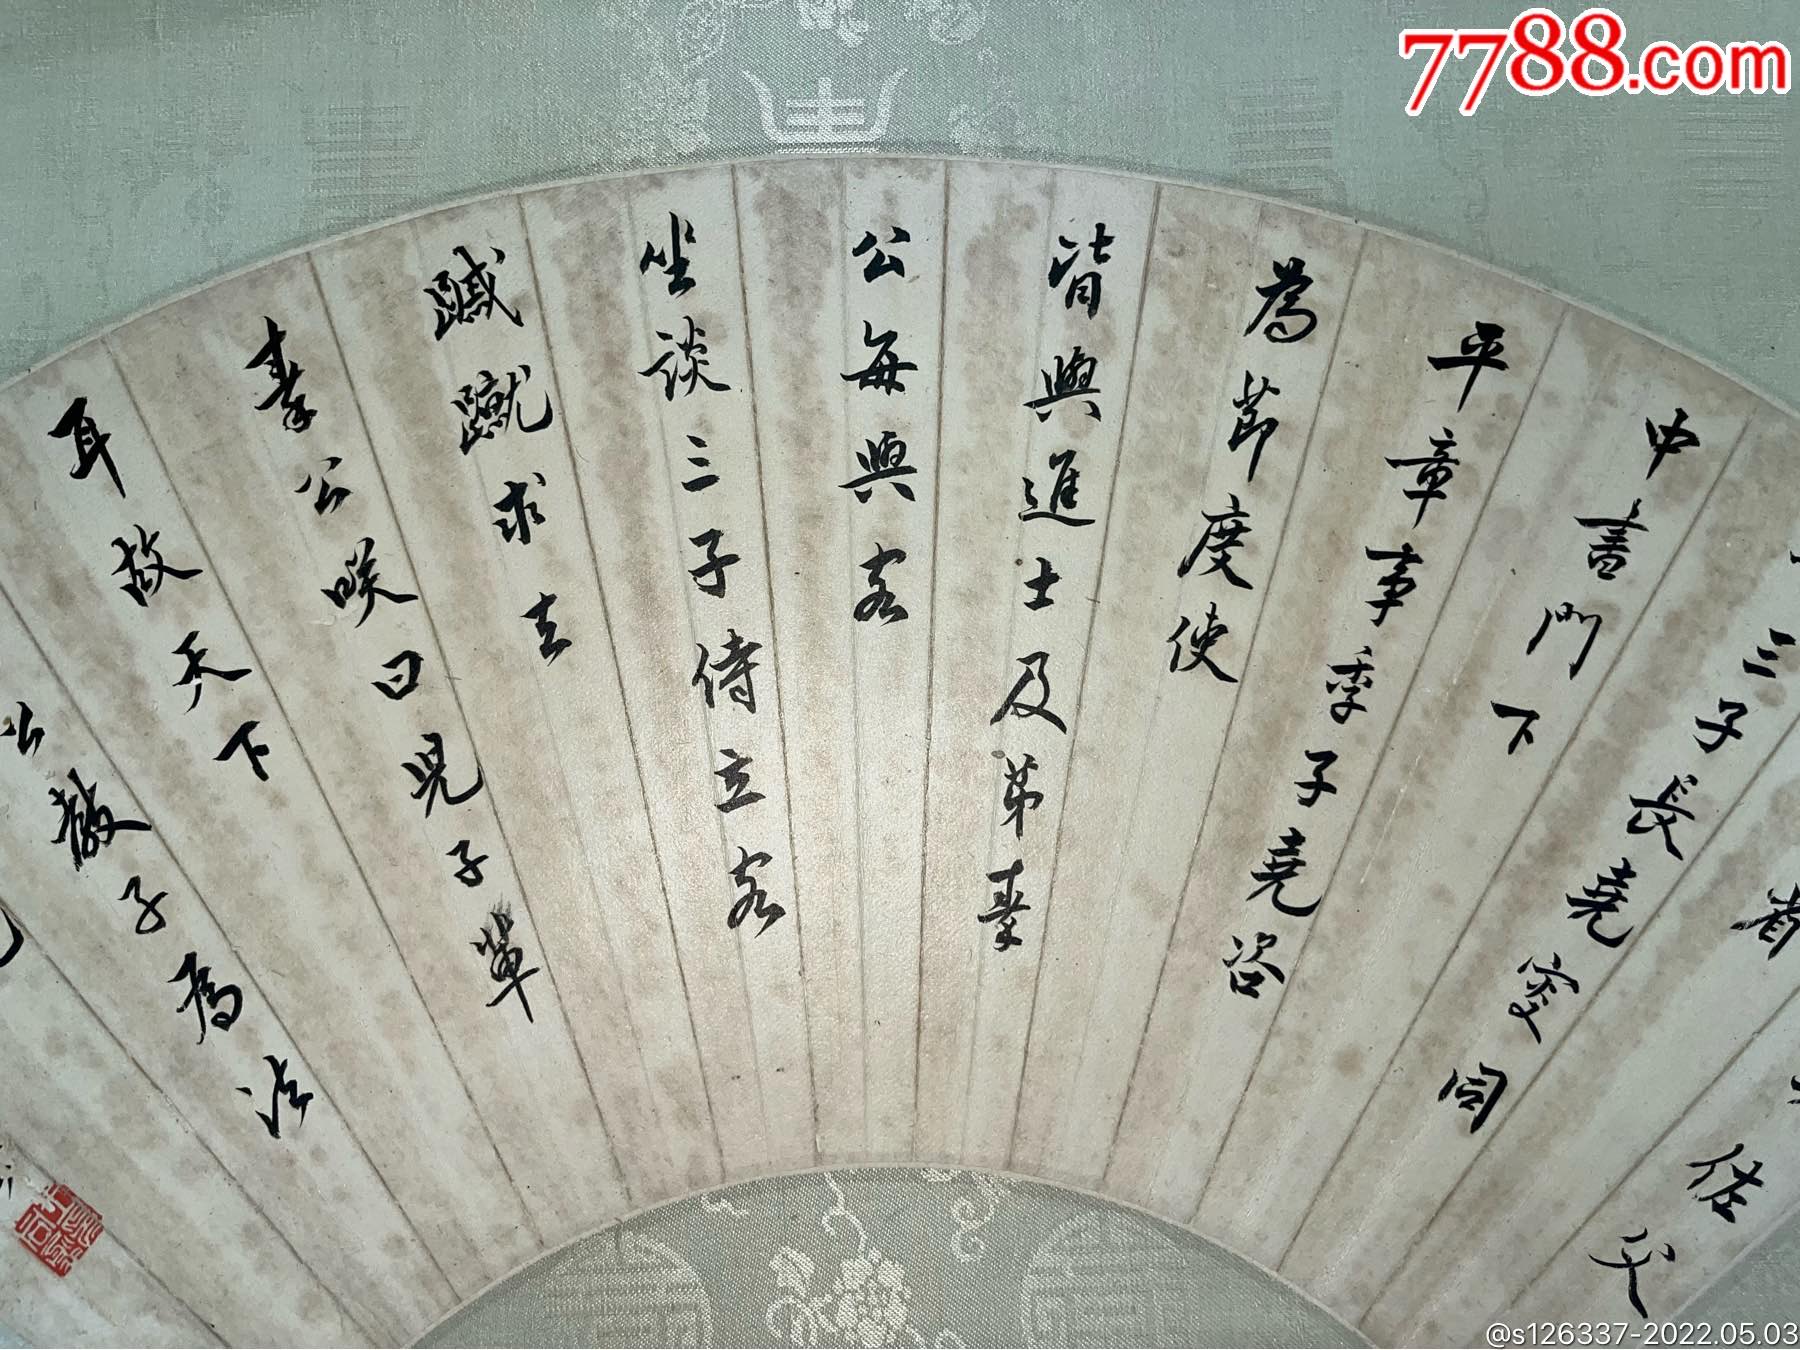 者
佐父
三子長堯叟同
中書門下
平章事季子堯咨
為節度使
皆與進士及第秦
公每與客
坐談三子侍立客
蹴蹴求去
秦公咲曰児子輩
耳故天下
公教子為法
7788.com
@s126337-2022.05.03